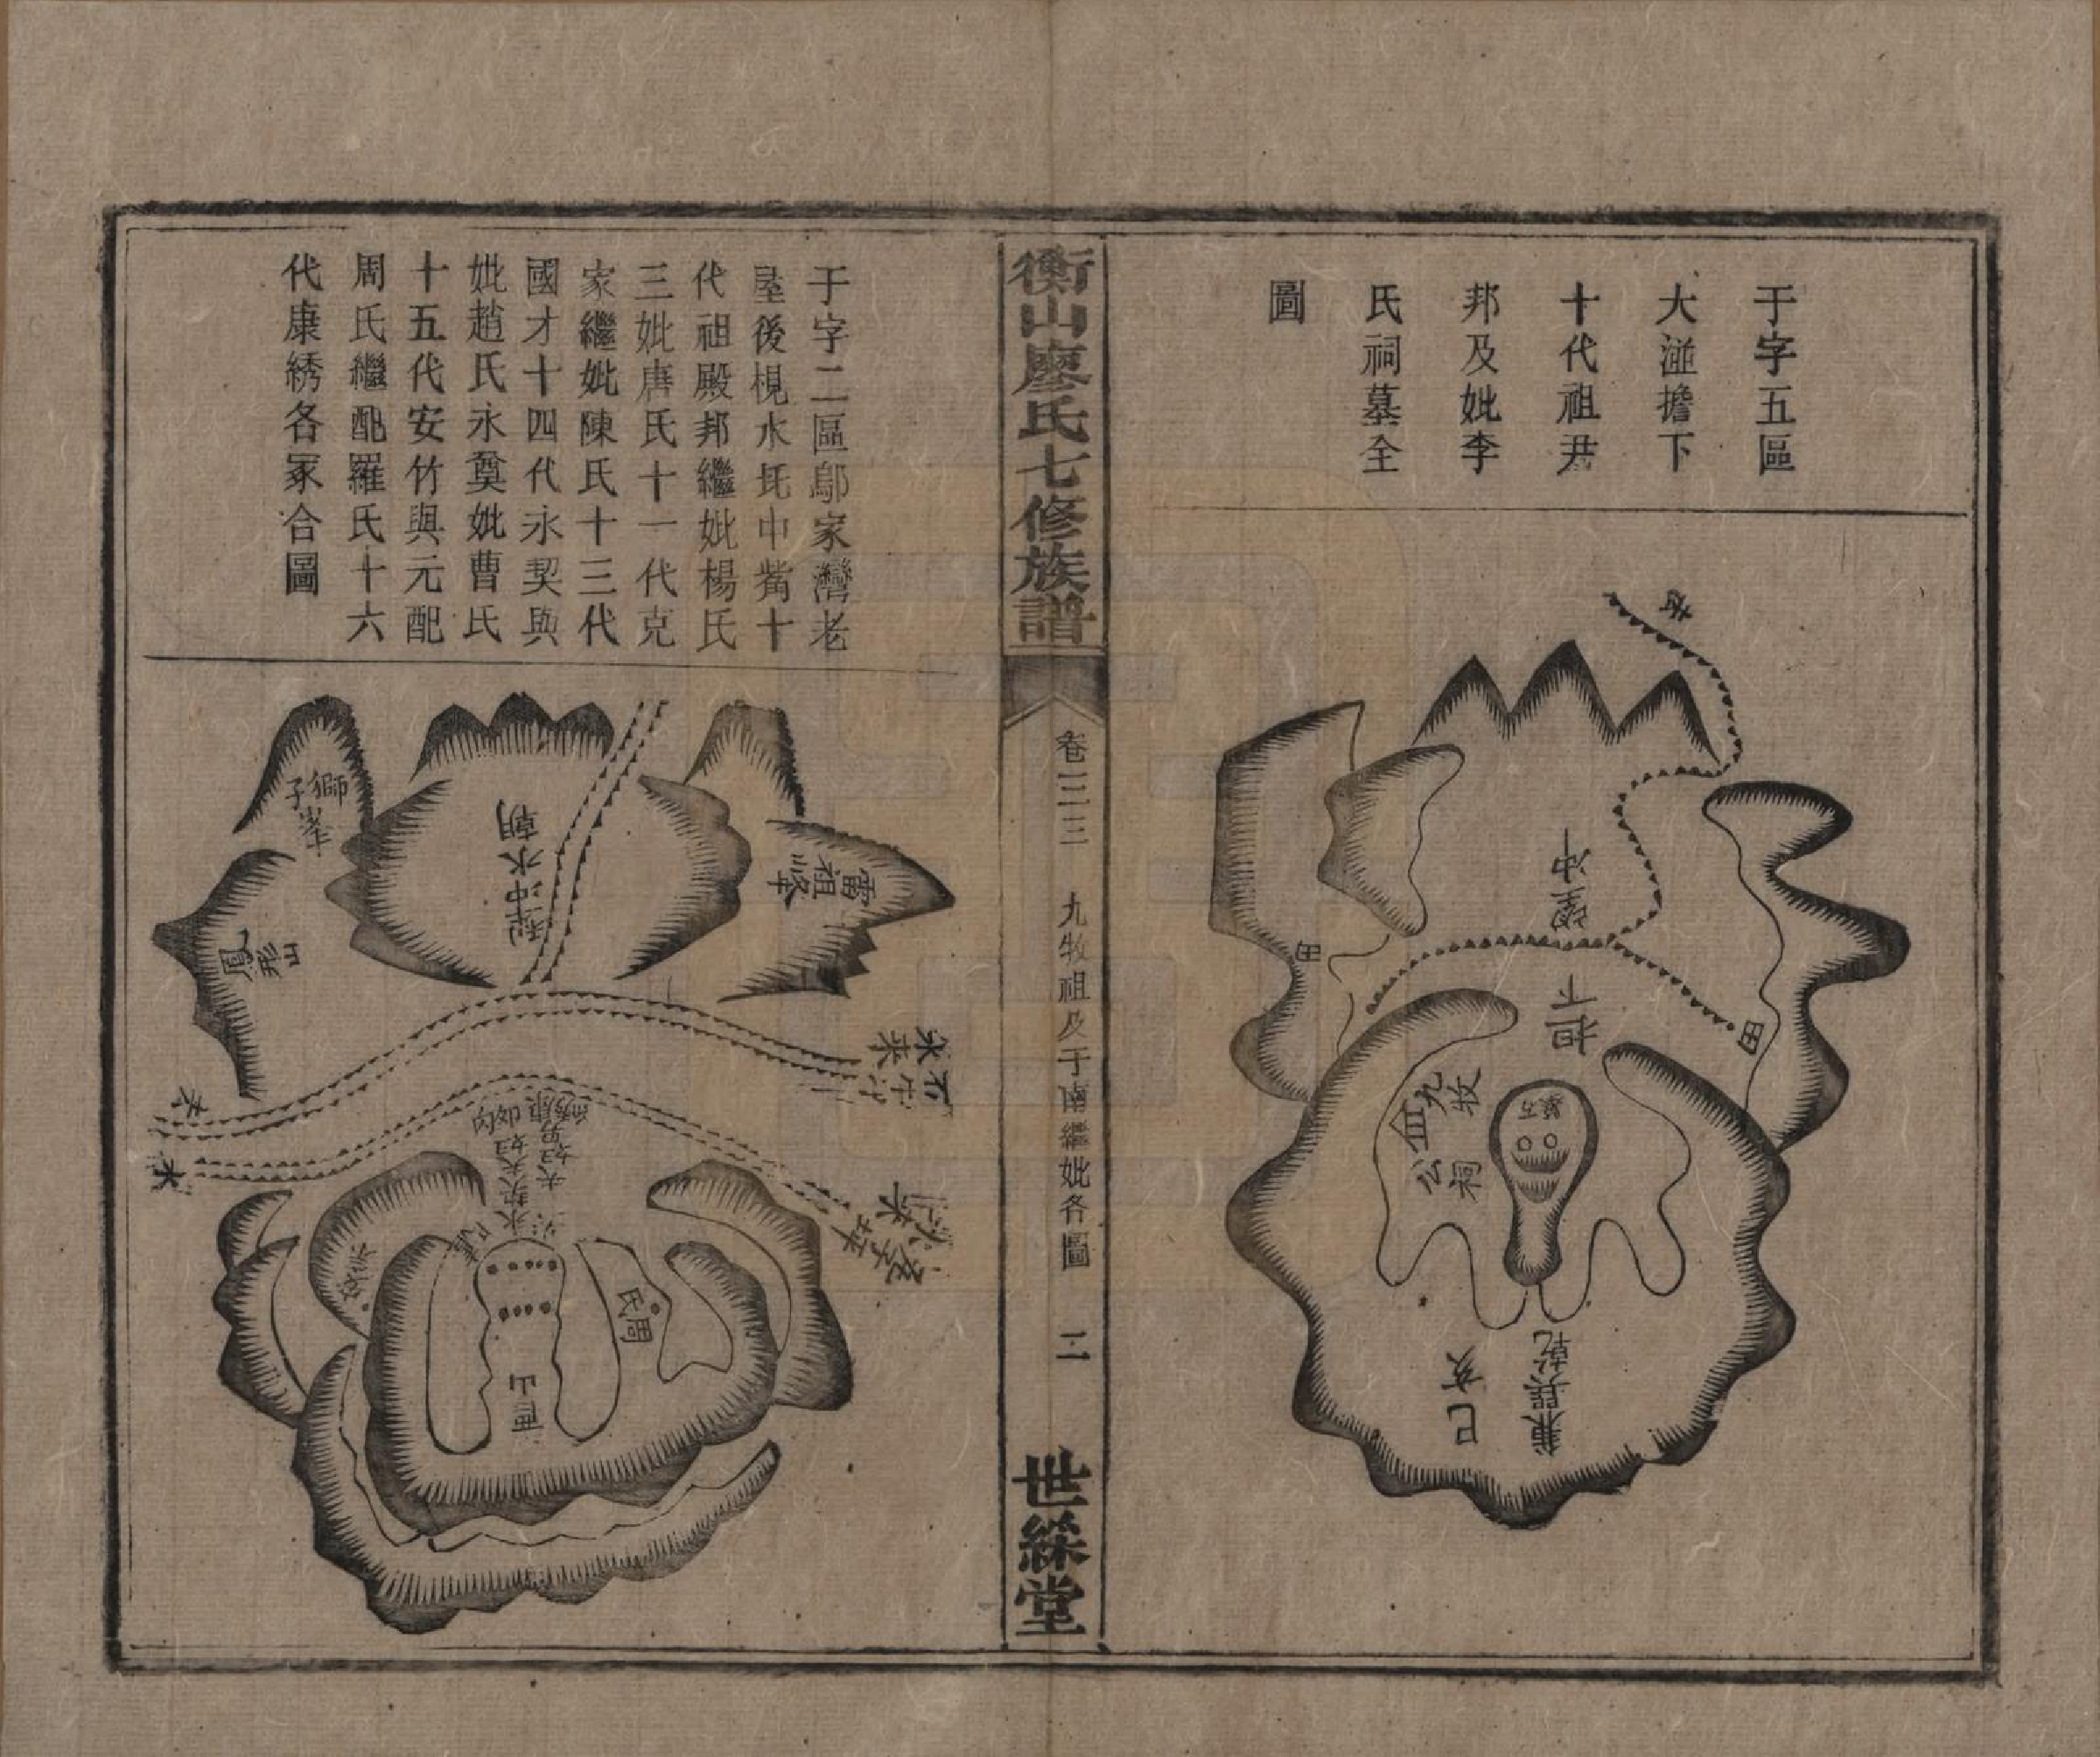 于字五區
大湴擔下
十代祖尹
邦及妣李
氏祠墓全
圖
望冲
担下
田
田
九牧
公祠
血
乾巽兼
亥巳
衡山廖氏七修族譜
卷三三
九牧祖及于南繼妣各圖
二
世綵堂
于字二區鄔家灣老
屋後梘水坵中觜十
代祖殿邦繼妣楊氏
三妣唐氏十一代克
家繼妣陳氏十三代
國才十四代永契與
妣趙氏永奠妣曹氏
十五代安竹與元配
周氏繼配羅氏十六
代康綉各冢合圖
雷祖峰
獅子峯
鳳形山
朝水冲
水
周氏
酉山